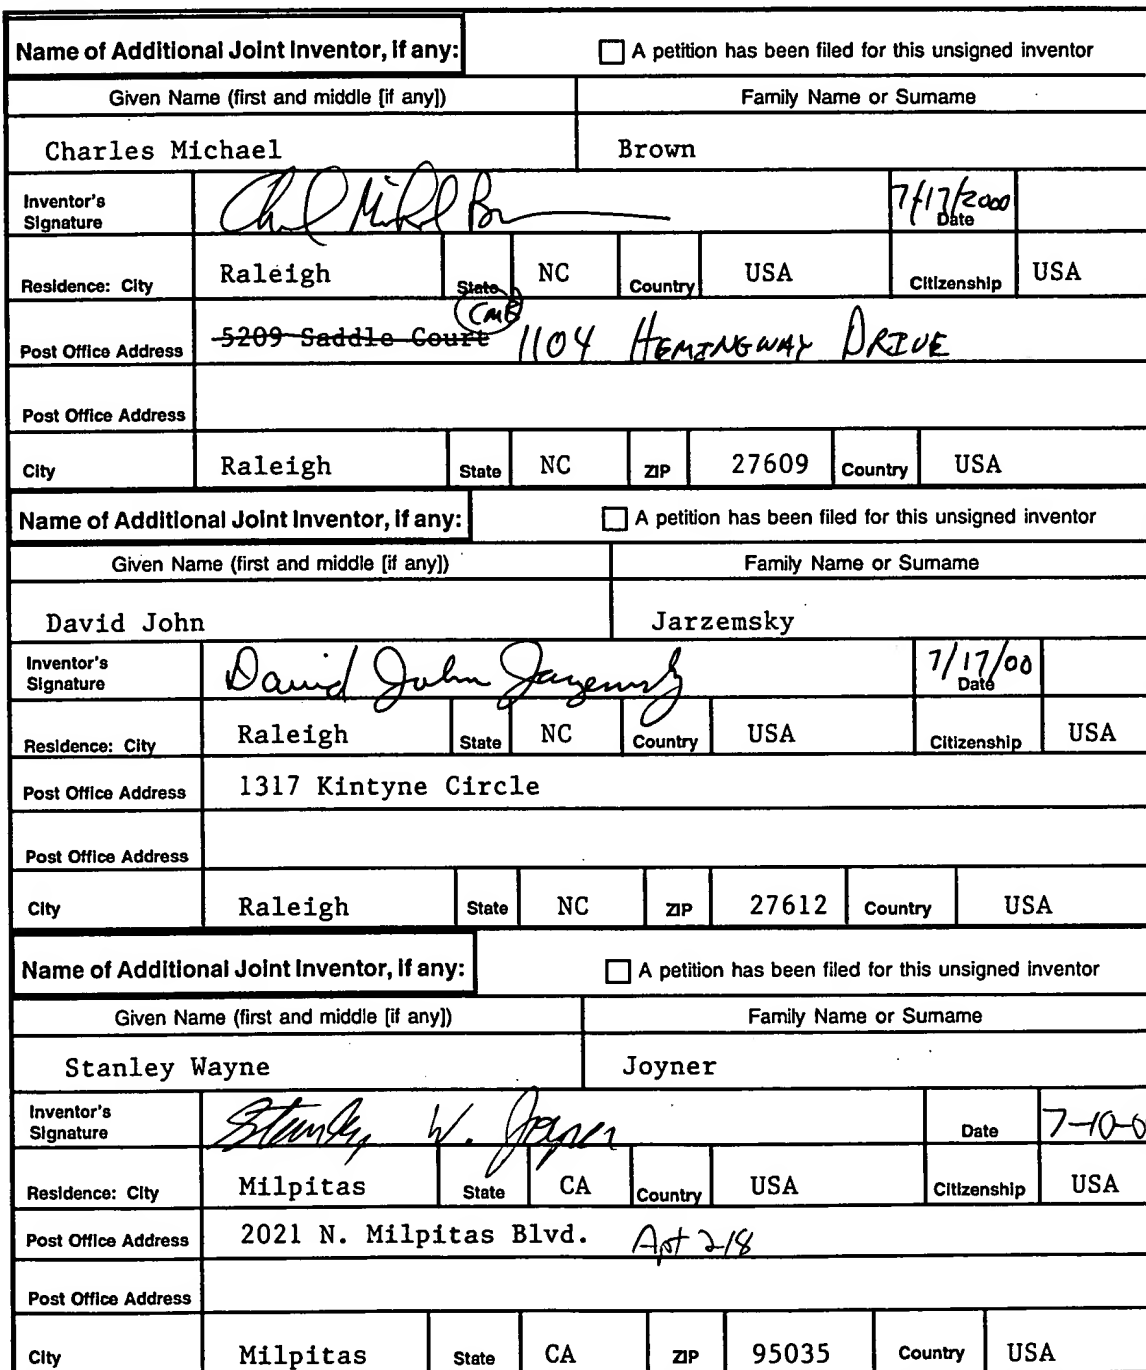 Name of Additional Joint Inventor, if any: A petition has been filed for this unsigned inventor
Given Name (first and middle [if any]) Family Name or Surname
Charles Michael Brown
Inventor's Signature 7/17/2000 Date
Residence: City Raleigh State NC Country USA Citizenship USA
CMB
Post Office Address 5209 Saddle Court 1104 HEMINGWAY DRIVE
Post Office Address
City Raleigh State NC ZIP 27609 Country USA
Name of Additional Joint Inventor, if any: A petition has been filed for this unsigned inventor
Given Name (first and middle [if any]) Family Name or Surname
David John Jarzemsky
Inventor's Signature David John Jarzemsky 7/17/00 Date
Residence: City Raleigh State NC Country USA Citizenship USA
Post Office Address 1317 Kintyne Circle
Post Office Address
City Raleigh State NC ZIP 27612 Country USA
Name of Additional Joint Inventor, if any: A petition has been filed for this unsigned inventor
Given Name (first and middle [if any]) Family Name or Surname
Stanley Wayne Joyner
Inventor's Signature Stanley W. Joyner Date 7-10-0
Residence: City Milpitas State CA Country USA Citizenship USA
Post Office Address 2021 N. Milpitas Blvd. Apt 218
Post Office Address
City Milpitas State CA ZIP 95035 Country USA